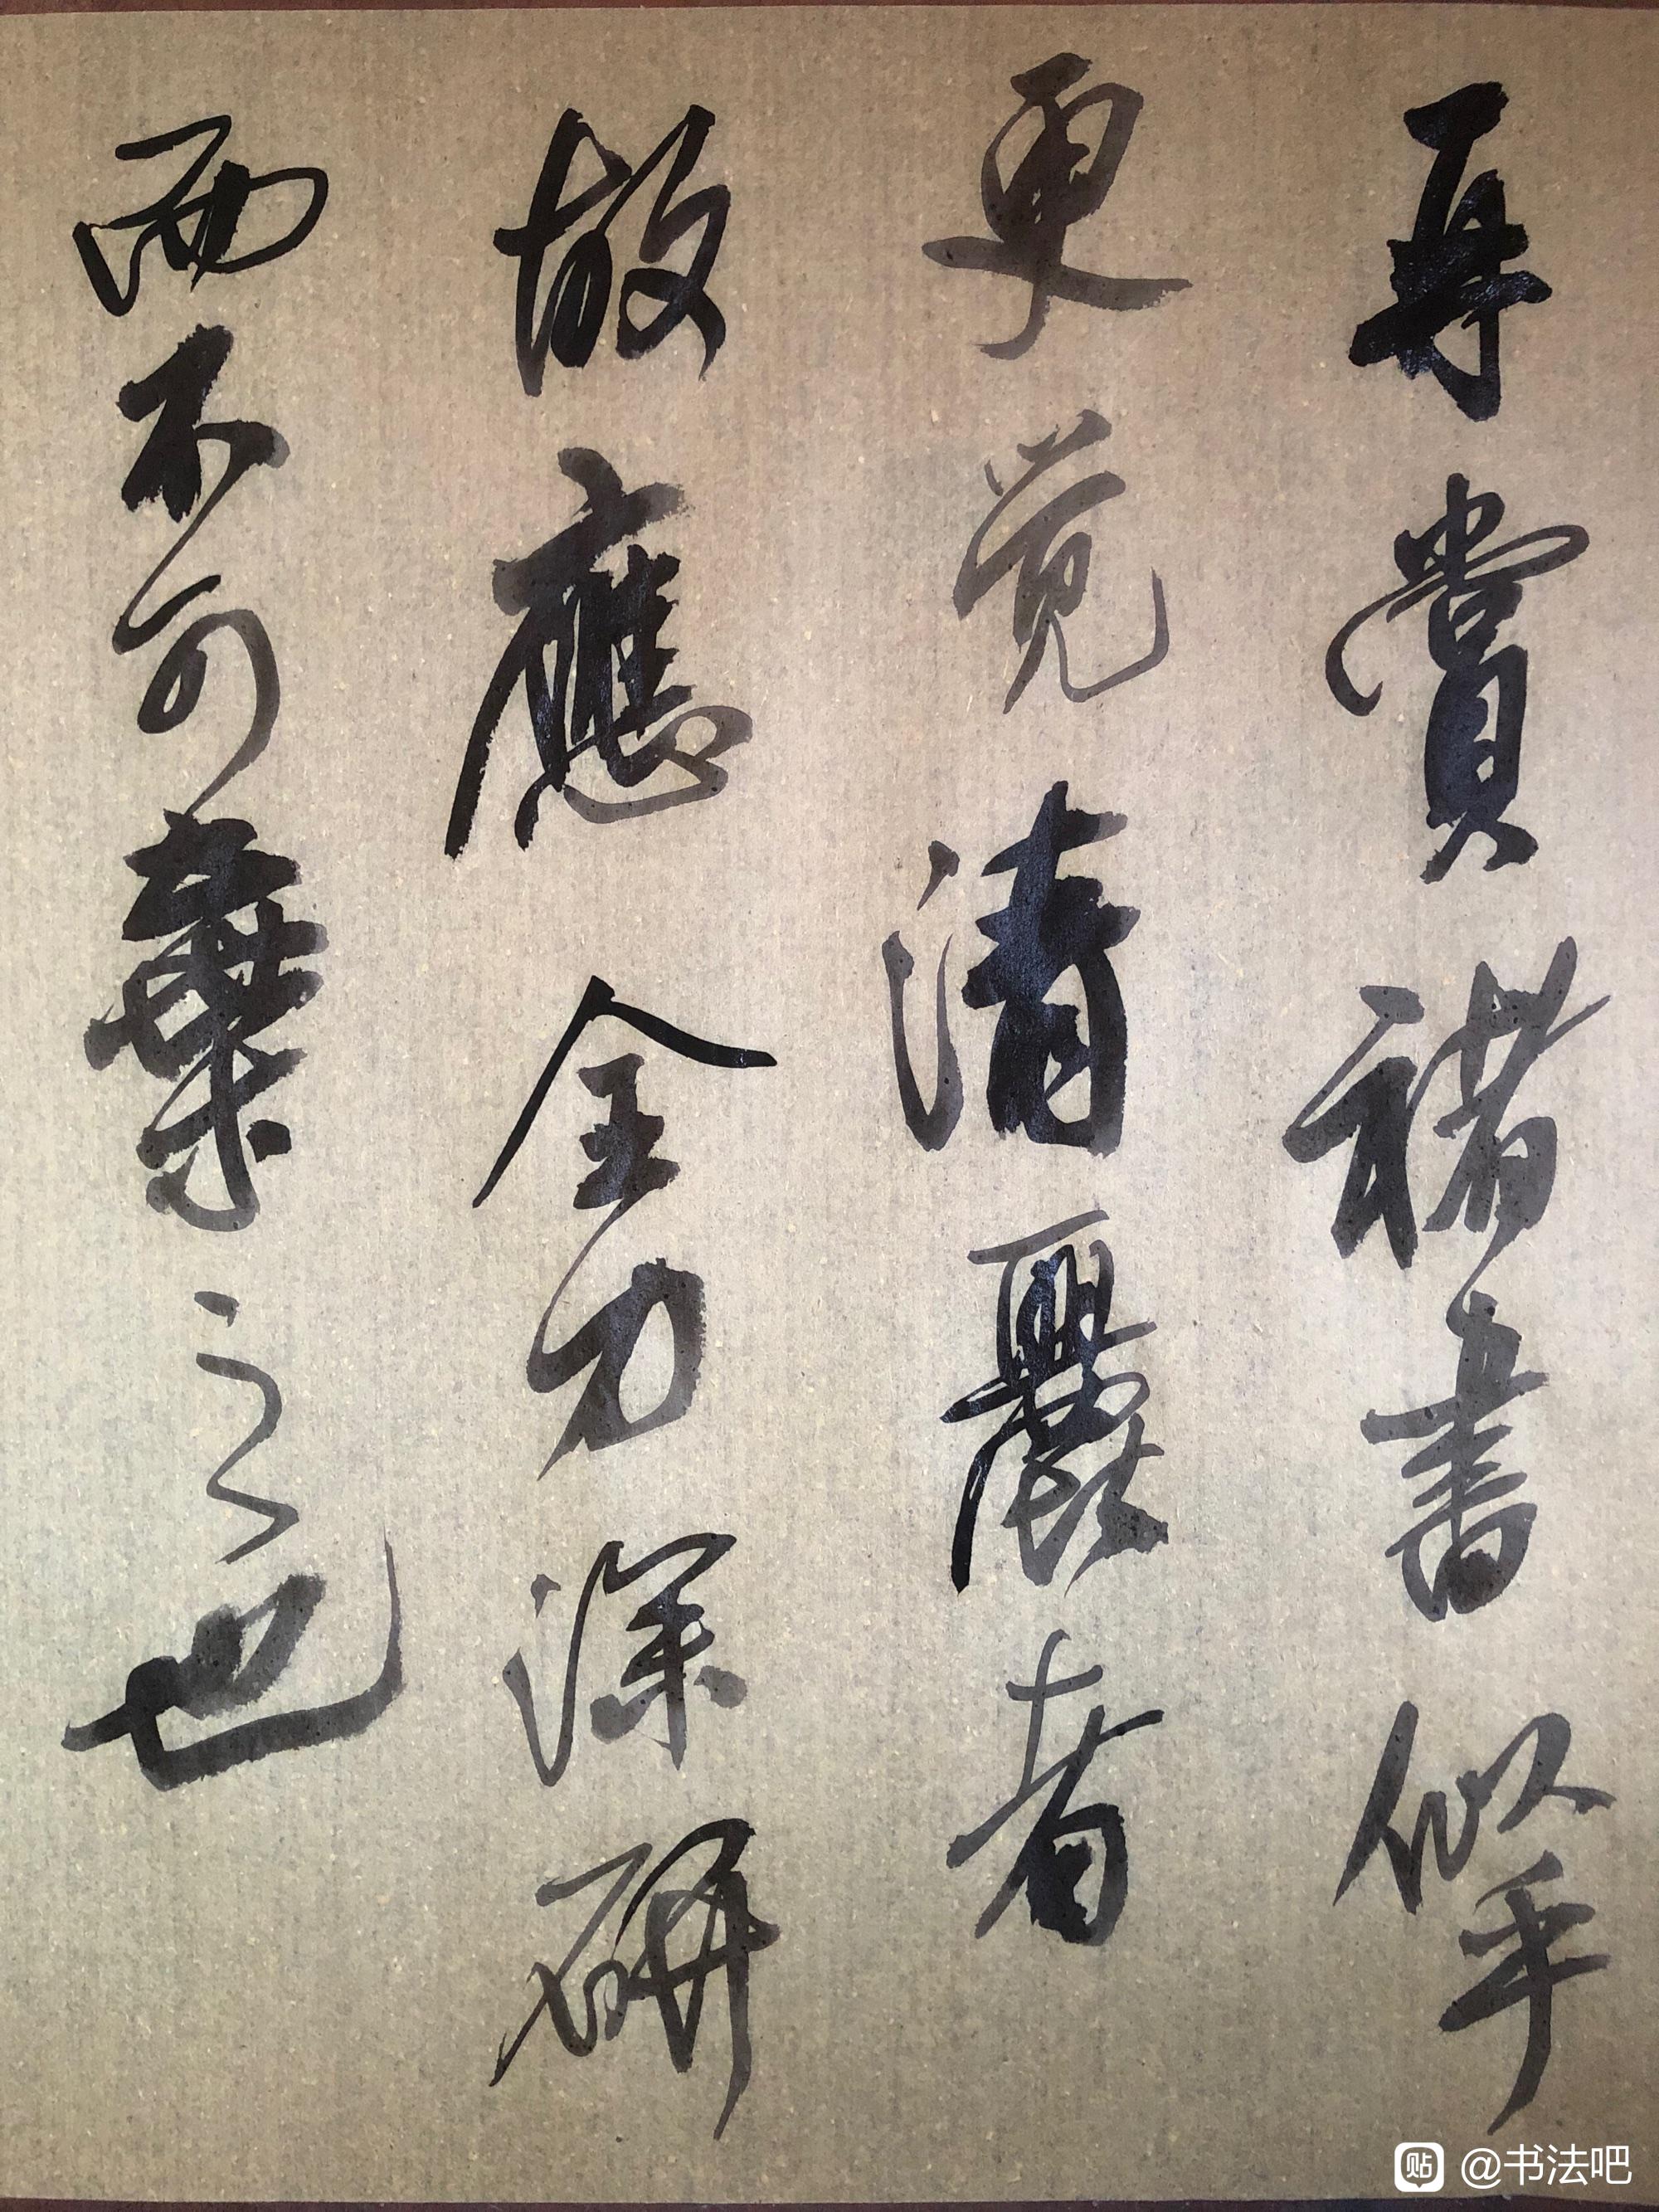 再賞褚書似乎
更觉清麗者
故應全力深研
而不可棄之也
贴 @书法吧